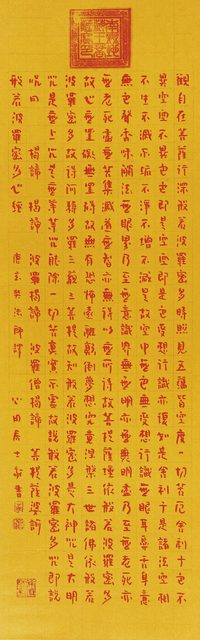 觀自在菩薩行深般若波羅密多時照見五蘊皆空度一切苦厄舍利子色不
異空空不異色色即是空空即是色受想行識亦復如是舍利子是諸法空相
不生不滅不垢不淨不增不減是故空中無色無受想行識無眼耳鼻舌身意
無色聲香味觸法無眼界乃至無意識界無無明亦無無明盡乃至無老死亦
無老死盡無苦集滅道無智亦無得以無所得故菩提薩埵依般若波羅密多
故心無罣礙無罣礙故無有恐怖遠離顛倒夢想究竟涅槃三世諸佛依般若
波羅密多故得阿耨多羅三藐三菩提故知般若波羅密多是大神咒是大明
咒是無上咒是無等等咒能除一切苦真實不虛故說般若波羅密多咒即說
咒曰 揭諦 揭諦 波羅揭諦 波羅僧揭諦 菩提薩婆訶
般若波羅密多心經 唐玄奘法師譯